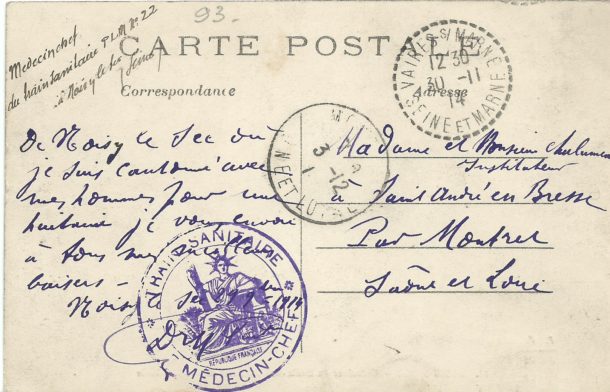 93.
Medecin chef
du train sanitaire PLM No 22
à Noisy le Sec
(Seine)
CARTE POSTALE
Correspondance
Adresse
VAIRES S/ MARNE
12 30
30 -11
14
SEINE ET MARNE
3 -12
ET LOIRE
De Noisy le Sec où
je suis cantonné avec
mes hommes pour une
huitaine je vous envoie
à tous mes meilleurs
baisers -
Noisy le Sec 1914
Madame et Monsieur
Instituteur
à Saint André en Bresse
Par Montret
Saône et Loire
TRAIN SANITAIRE
RÉPUBLIQUE FRANÇAISE
MÉDECIN-CHEF